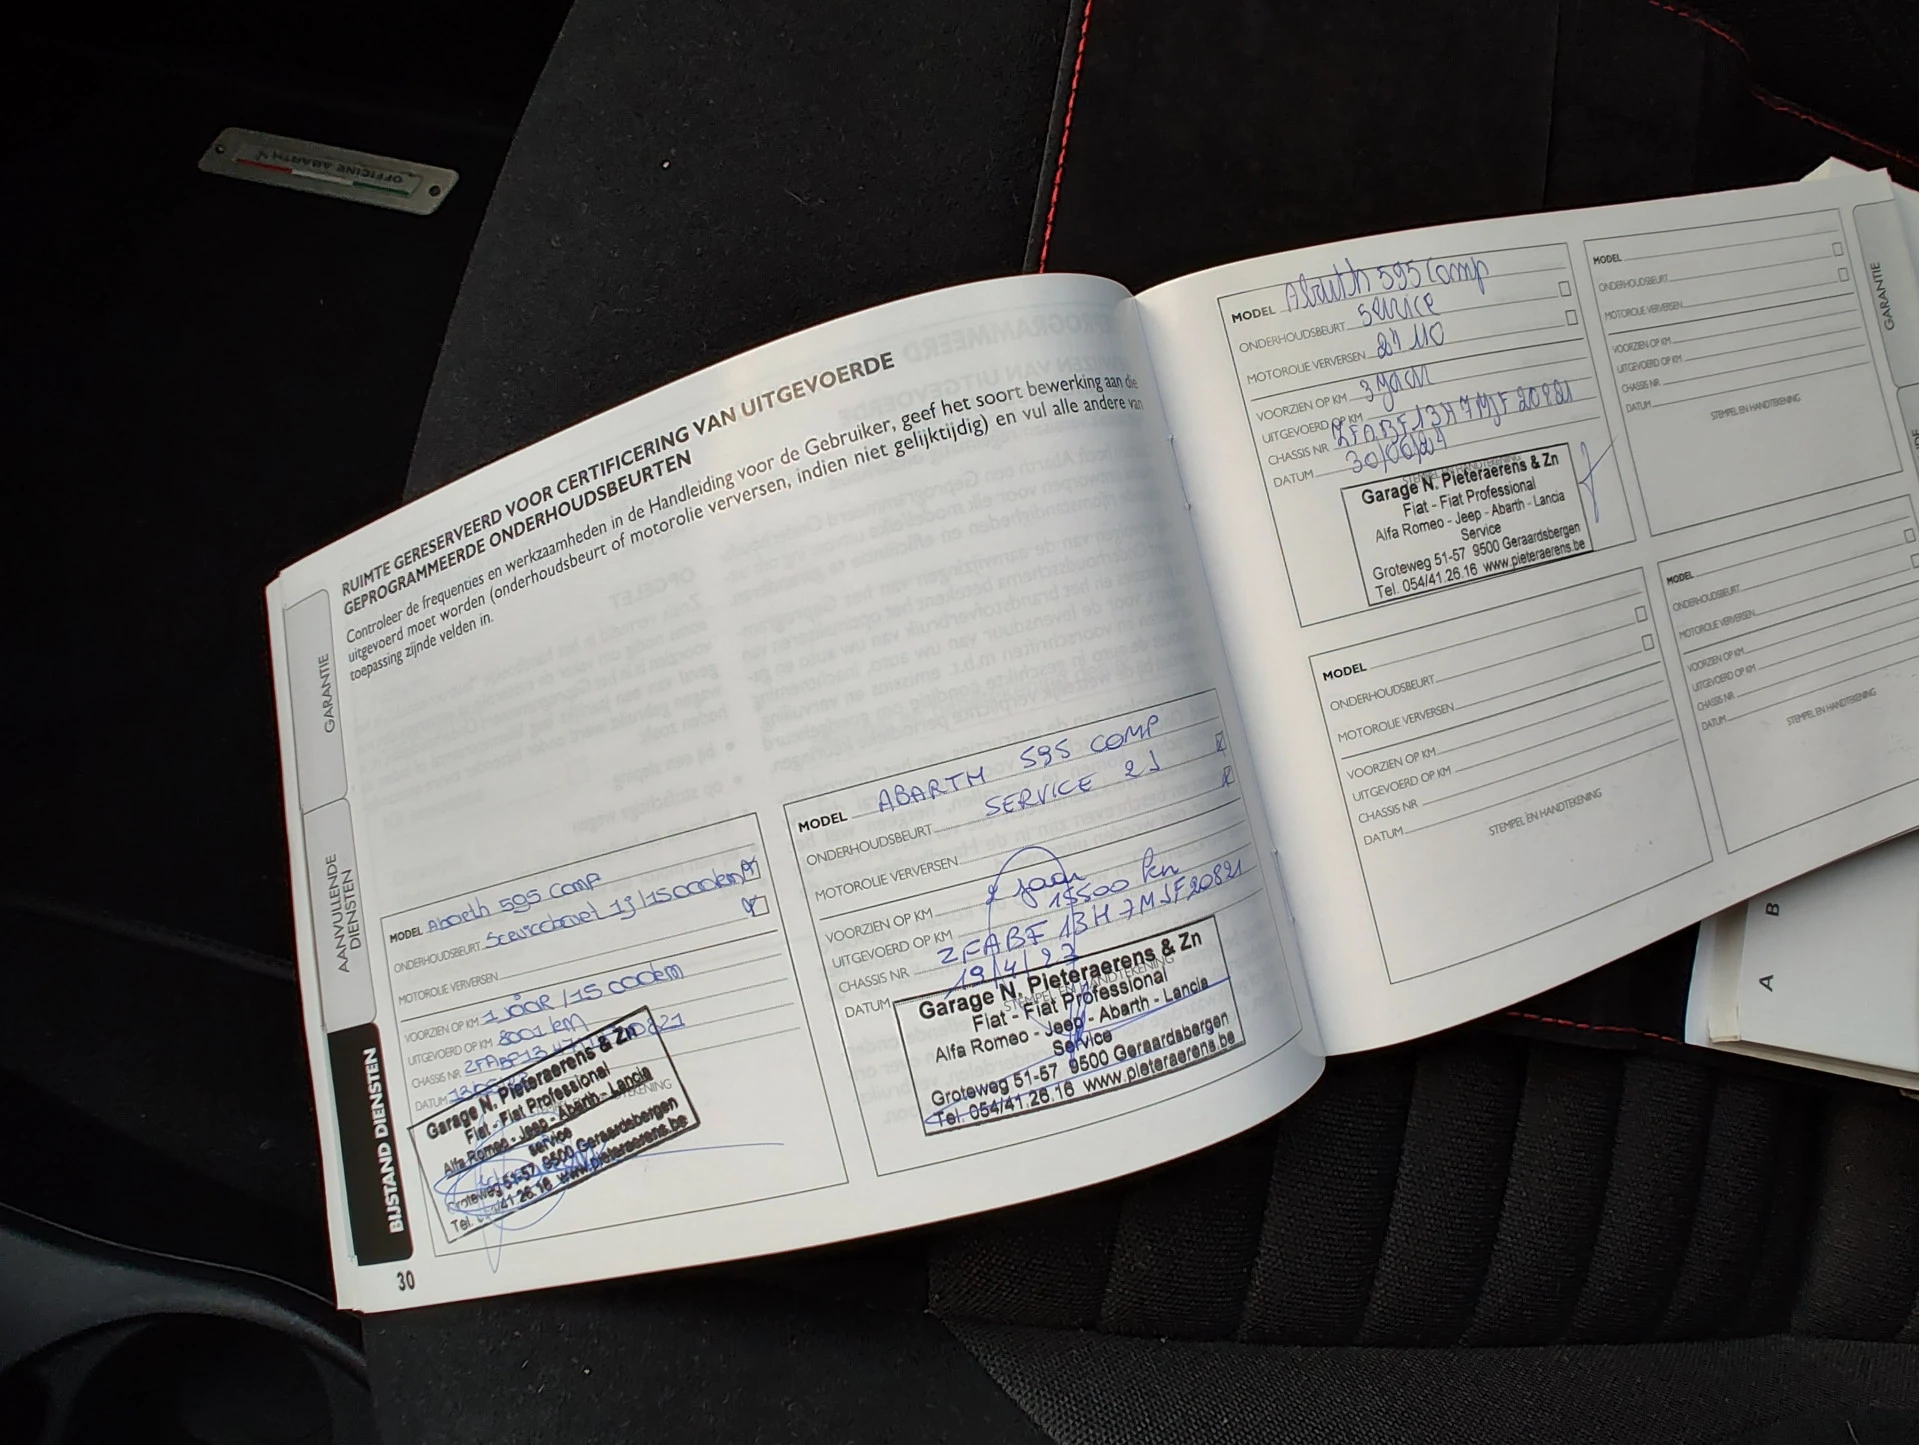 OFFICINE ABARTH
RUIMTE GERESERVEERD VOOR CERTIFICERING VAN UITGEVOERDE
GEPROGRAMMEERDE ONDERHOUDSBEURTEN
Controleer de frequenties en werkzaamheden in de Handleiding voor de Gebruiker, geef het soort bewerking aan die
uitgevoerd moet worden (onderhoudsbeurt of motorolie verversen, indien niet gelijktijdig) en vul alle andere van
toepassing zijnde velden in.
GARANTIE
AANVULLENDE
DIENSTEN
BIJSTAND DIENSTEN
MODEL Abarth 595 Comp
ONDERHOUDSBEURT Servicebeurt 1j/15000km
MOTOROLIE VERVERSEN
VOORZIEN OP KM 1 JAAR / 15 000km
UITGEVOERD OP KM 8001 km
CHASSIS NR. ZFABF13
DATUM
Garage N. Pieteraerens & Zn
Fiat - Fiat Professional
Alfa Romeo - Jeep - Abarth - Lancia
service
Groteweg 51-57 9500 Geraardsbergen
Tel. 41.26.16 www.pieteraerens.be
30
MODEL ABARTH 595 COMP
ONDERHOUDSBEURT SERVICE 2J
MOTOROLIE VERVERSEN
VOORZIEN OP KM 2 jaar
UITGEVOERD OP KM 15500 km
CHASSIS NR ZFABF13H7MJF20821
DATUM 19/4/23
STEMPEL EN HANDTEKENING
Garage N. Pieteraerens & Zn
Fiat - Fiat Professional
Alfa Romeo - Jeep - Abarth - Lancia
Service
Groteweg 51-57 9500 Geraardsbergen
Tel. 054/41.26.16 www.pieteraerens.be
MODEL Abarth 595 Comp
ONDERHOUDSBEURT service
MOTOROLIE VERVERSEN
VOORZIEN OP KM 3 jaar
UITGEVOERD OP KM
CHASSIS NR ZFABF13H7MJF20821
DATUM 30/06/24
STEMPEL EN HANDTEKENING
Garage N. Pieteraerens & Zn
Fiat - Fiat Professional
Alfa Romeo - Jeep - Abarth - Lancia
Service
Groteweg 51-57 9500 Geraardsbergen
Tel. 054/41.26.16 www.pieteraerens.be
MODEL
ONDERHOUDSBEURT
MOTOROLIE VERVERSEN
VOORZIEN OP KM
UITGEVOERD OP KM
CHASSIS NR.
DATUM
STEMPEL EN HANDTEKENING
GARANTIE
MODEL
ONDERHOUDSBEURT
MOTOROLIE VERVERSEN
VOORZIEN OP KM
UITGEVOERD OP KM
CHASSIS NR
DATUM
STEMPEL EN HANDTEKENING
MODEL
ONDERHOUDSBEURT
MOTOROLIE VERVERSEN
VOORZIEN OP KM
UITGEVOERD OP KM
CHASSIS NR
DATUM
STEMPEL EN HANDTEKENING
A
B